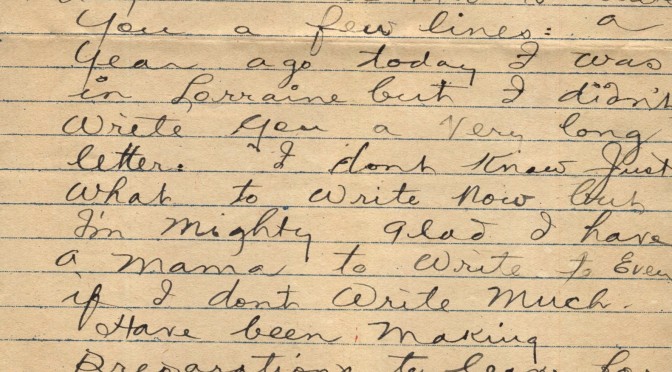 You a few lines: a
Year ago today I was
in Lorraine but I didn't
Write You a Very long
letter: I dont Know Just
What to Write Now but
I'm Mighty glad I have
a Mama to Write to Even
if I dont Write Much.
Have been Making
Preparations to leave for